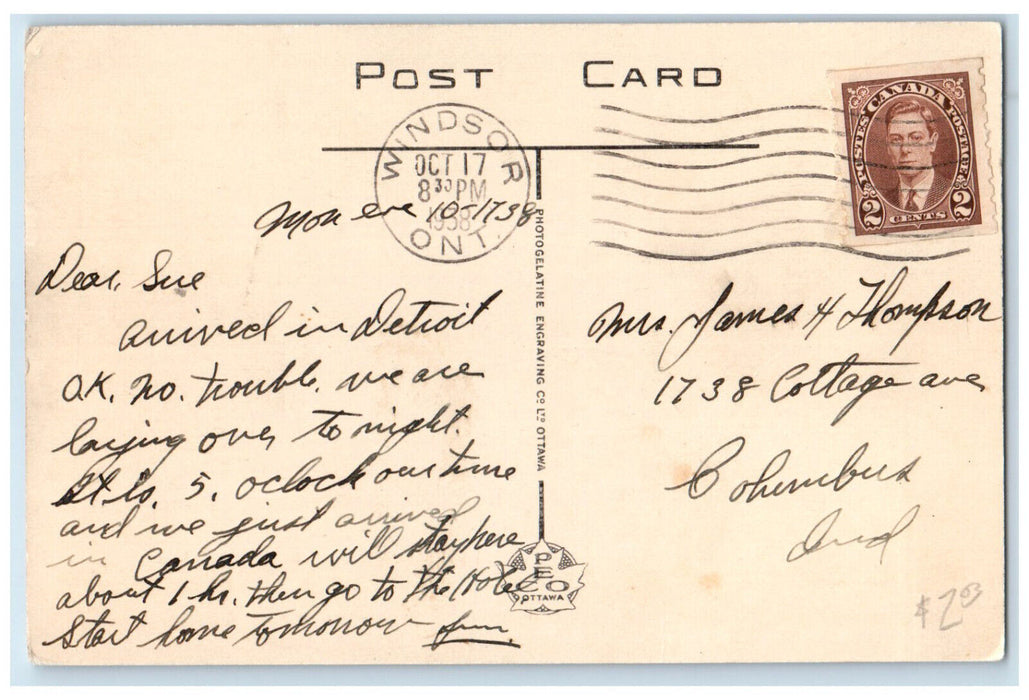 POST CARD
WINDSOR
OCT 17
8 30 PM
1938
ONT.
POSTES CANADA POSTAGE
2 CENTS 2
Mon eve 10-17-38
Dear, Sue
arrived in Detroit
O.K. No. trouble. we are
laying over to night.
It is. 5. oclock our time
and we just arrived
in Canada will stay here
about 1 hr. then go to the Hotel
Start home tomorrow
PHOTOGELATINE ENGRAVING CO LTD OTTAWA
PECO
OTTAWA
Mrs. James H Thompson
1738 Cottage ave
Columbus
Ind